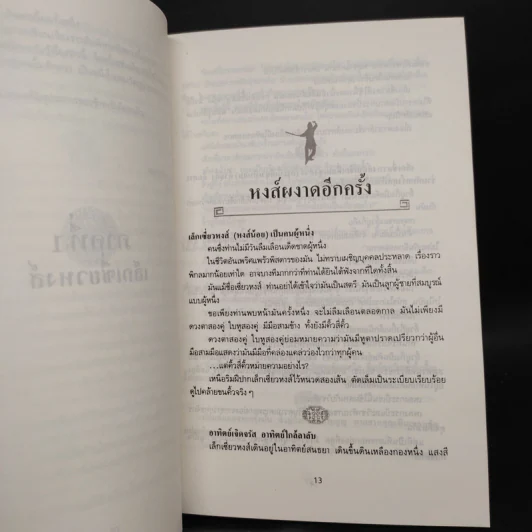 หงส์ผงาดอีกครั้ง
เล็กเซี่ยวหงส์ (หงส์น้อย) เป็นคนผู้หนึ่ง
คนซึ่งท่านไม่มีวันลืมเลือนเด็ดขาดผู้หนึ่ง
ในชีวิตอันเพริศแพร้วพิสดารของมัน ไม่ทราบเผชิญบุคคลประหลาด เรื่องราว
พิกลมากน้อยเท่าใด อาจบางทีมากกว่าที่ท่านได้ยินได้ฟังจากที่ใดทั้งสิ้น
มันแม้ชื่อเซี่ยวหงส์ ท่านอย่าได้เข้าใจว่ามันเป็นสตรี มันเป็นลูกผู้ชายที่สมบูรณ์
แบบผู้หนึ่ง
ขอเพียงท่านพบหน้ามันครั้งหนึ่ง จะไม่ลืมเลือนตลอดกาล มันไม่เพียงมี
ดวงตาสองคู่ ใบหูสองคู่ มีมือสามข้าง ทั้งยังมีคิ้วสี่คิ้ว
ดวงตาสองคู่ ใบหูสองคู่ย่อมหมายความว่ามันมีหูตาปราดเปรียวกว่าผู้อื่น
มือสามมือแสดงว่ามันมีมือที่คล่องแคล่วว่องไวกว่าทุกผู้คน
...แต่คิ้วสี่คิ้วหมายความอย่างไร?
เหนือริมฝีปากเล็กเซี่ยวหงส์ไว้หนวดสองเส้น ตัดเล็มเป็นระเบียบเรียบร้อย
ดูไปคล้ายขนคิ้วจริง ๆ
อาทิตย์เจิดจรัส อาทิตย์ใกล้ลาลับ
เล็กเซี่ยวหงส์เดินอยู่ในอาทิตย์สนธยา เดินขึ้นดินเหลืองกองหนึ่ง แสงสี
13